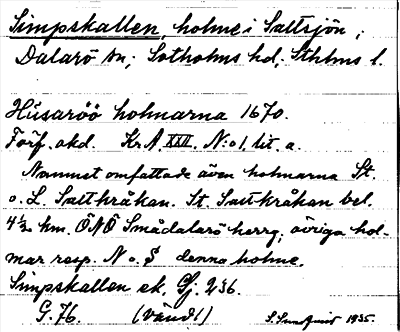 Simpskallen, holme i Saltsjön,
Dalarö sn; Sotholms hd, Sthlms l.
Husaröö holmarna 1670.
Förf. okd. Kr. A. XXII. N:o 1, lit. a.
Namnet omfattade även holmarna St.
o. L. Saltkråkan. St. Saltkråkan bel.
4½ km. ÖNÖ Smådalarö herrg., övriga hol-
mar resp. N o. S denna holme.
Simpskallen ek. Gj. 236.
G. 76. (vänd!) S. Sundquist 1935.